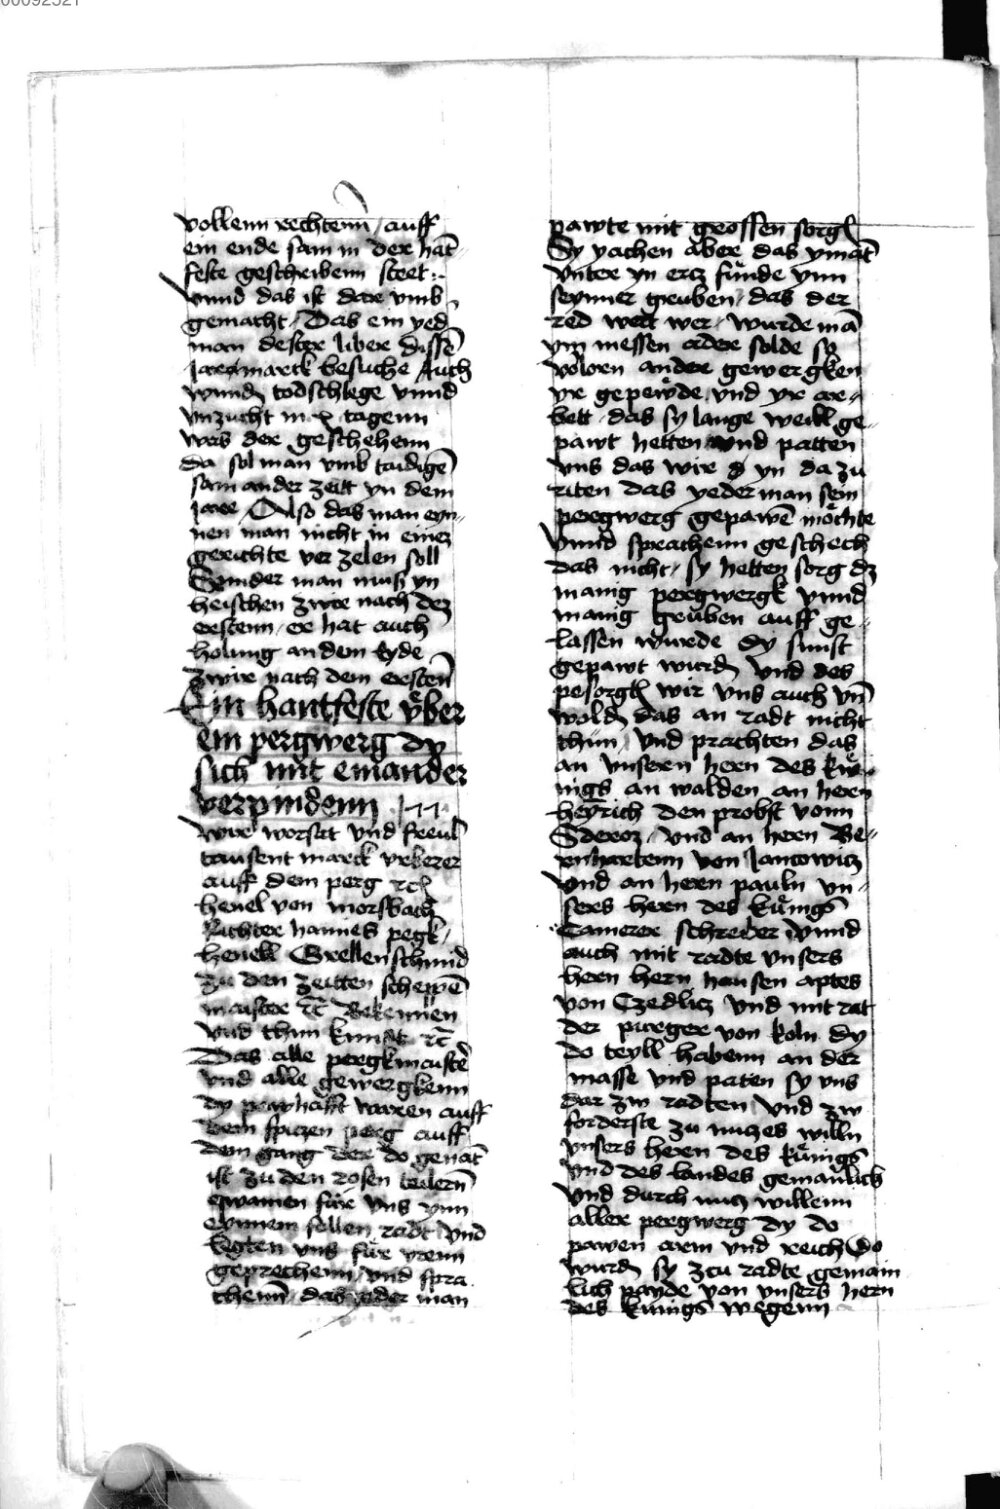 00092521
vollenn rechtenn / auff
ein ende sam in der hāt
feste geschribenn steet :.
Vnnd das ist dar vmb
gemacht / Das ein yed
man dester liber dissē
Jarmarck besuche Auch
wundn̄ todschlege vnnd
vnzucht in x tagenn
was der geschehenn
da sol man vmb taidigē
sam ander zeitt yn dem
Jare / Also das man eyn-
nen man nicht in einez
gerichte ver zelen soll
Sunder man mus yn
heischen zwir nach dez
erstenn / er hat auch
holung an dem eyde
zwir nach dem erstēn
Ein hantfeste vber
ein pergwerg dy
sich mit einander
verpindenn
Wir worsut vnd freul
tausent marck vrberer
auff dem perg rc
henel von morsbach
Richter hannes pegk /
henell Grellenschmid
zu den zeitten schepē
maister rc Bekennen
vnd thun kundt rc
Das alle pergkmaistē
vnd alle gewergkenn
dy pawhafft waren auff
dem spiczen perg auff
dem gang der do genāt
ist zu den rosen
qwamen für vns ynn
eynnem follen radt vnd
legten vns für yrenn
geprechenn / vnd spra
chenn das yder man
pawte mit grossen sorgn̄
Sy yachen aber das ymāt
vnter yn ercz fünde ynn
seynner gruben / das der
red wert wer / wurde mā
ym messen ader solde so
vloren ander gewergken
yr gepewde vnd yr ar-
bett / das sy lange weill ge-
pawt hetten vnd patten
vns das wir yn da zu
riten das yederman sein
pergwerg gepawē möchte
Vnnd sprachenn geschech
das nicht / sy hetten sorg dz
manig pergwergk vnnd
manig gruben auff ge-
lassen wurde dy sunst
gepawt wurdn̄ vnd des
pesorgtn̄ wir vns auch vn̄
woldn̄ das an radt nicht
thun / vnd prachten das
an vnsern hern des kü-
nigs an walden an hern
heyrich den probst vonn
Sderoz / vnd an hern Be-
rnhartenn von Jancowicz
vnd an hern pauln vn-
sers hern des künigs
Camerer schreiber vnnd
auch mit radte vnsers
hern hern hansen aptes
von Czedlicz vnd mit rat
der purger von koln dy
do teyll habenn an der
masse vnd paten sy vns
dar zw radten vnd zw
forderste zu nuczes willn
vnsers hern des künigs
vnd des landes gemainlich
vnd durch nucz willenn
aller pergwerg dy do
pawen arm vnd reich do
wurdn̄ sy zcu radte gemain
lich payde von vnsers hern
des künigs wegenn